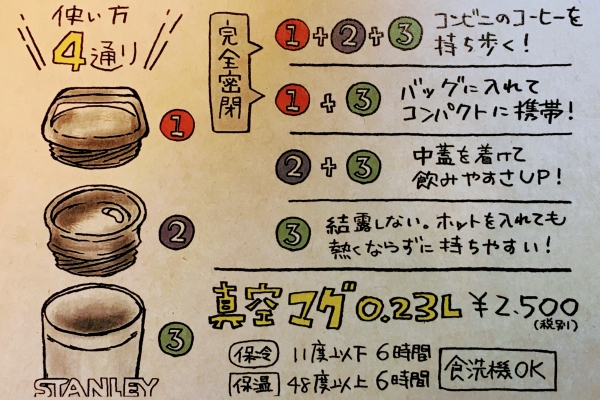 使い方
4通り
完全密閉
1+2+3
コンビニのコーヒーを
持ち歩く!
1+3
バッグに入れて
コンパクトに携帯!
2+3
中蓋を着けて
飲みやすさUP!
3
結露しない。ホットを入れても
熱くならずに持ちやすい!
1
2
3
STANLEY
真空マグ0.23L ¥2,500
(税別)
保冷 11度以下 6時間
保温 48度以上 6時間
食洗機OK